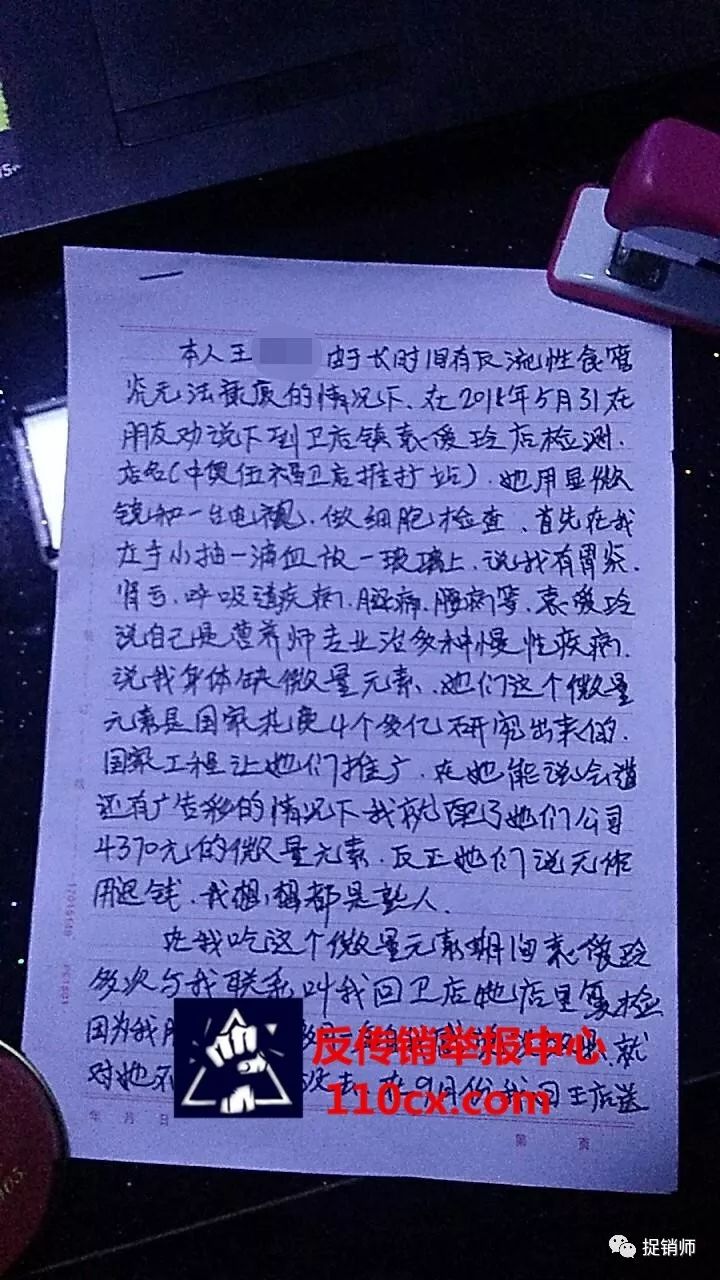 本人王 由于长时间有反流性食管
炎无法康复的情况下、在2018年5月31在
朋友劝说下到卫店镇袁俊玲店检测.
店名(中奥伍福卫店推广站).她用显微
镜和一台电视.做细胞检查、首先在我
左手小抽一滴血放一玻璃上.说我有胃炎.
肾亏.呼吸道疾病.脑病.腰病等.袁俊玲
说自己是营养师专业治多种慢性疾病.
说我身体缺微量元素、她们这个微量
元素是国家花费4个多亿研究出来的.
国家工程让她们推广.在她能说会道
还有广告彩的情况下我就配了她们公司
4370元的微量元素.反正她们说无作
用退钱.我想,想都是熟人.
在我吃这个微量元素期间袁俊玲
多次与我联系叫我回卫店她店里复检
因为我 就
对她不 没去.在9月份我回王店送
年 月 日
第 页
反传销举报中心
110cx.com
捉销师